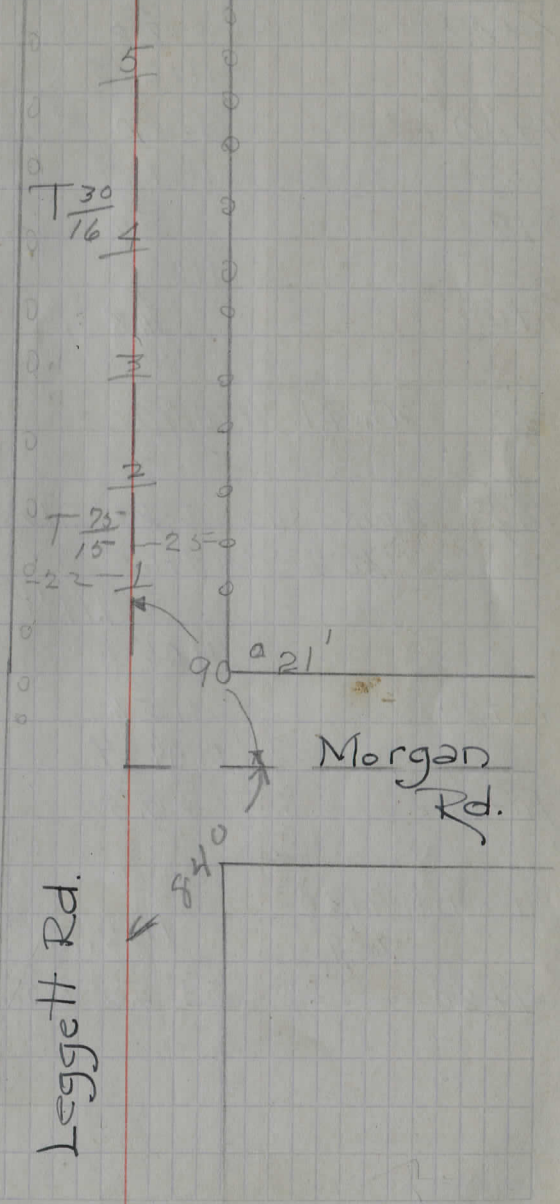 5
T 30/16
4
3
2
T 25/15
25
22
1
90° 21'
Morgan
Rd.
84°
Leggett Rd.